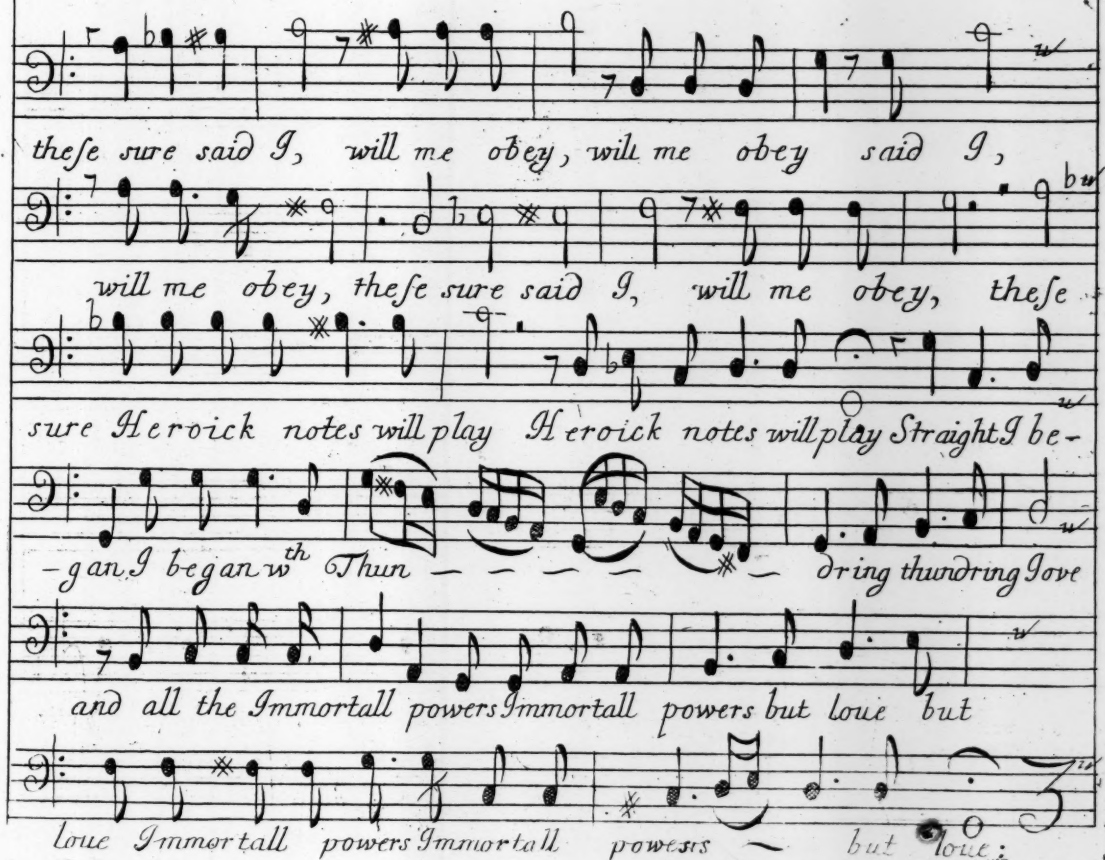 theſe sure said I, will me obey, will me obey said I,
will me obey, theſe sure said I, will me obey, theſe
sure Heroick notes will play Heroick notes will play Straight I be-
-gan I began wth Thun - - - - - - dring thundring Iove
and all the Immortall powers Immortall powers but loue but
loue Immortall powers Immortall powers - but loue: